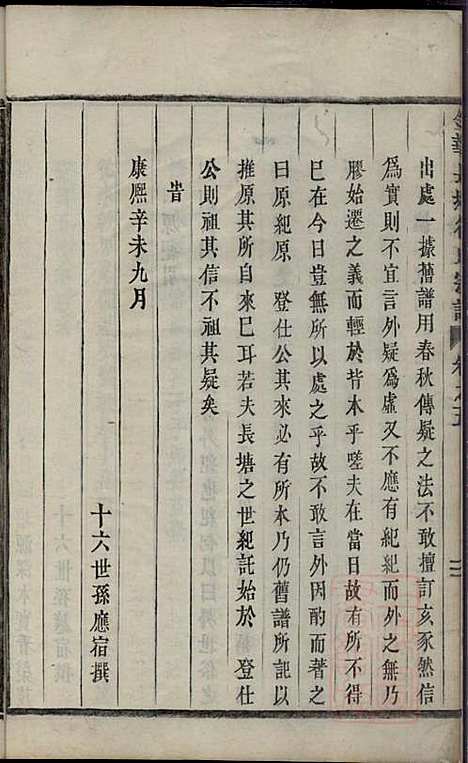 出處一據舊譜用春秋傳疑之法不敢擅訂亥豕然信
爲實則不宜言外疑爲虛又不應有紀紀而外之無乃
膠始遷之義而輕於背本乎嗟夫在當日故有所不得
巳在今日豈無所以處之乎故不敢言外因酌而著之
曰原紀原 登仕公其來必有所本乃仍舊譜所記以
推原其所自來巳耳若夫長塘之世紀託始於 登仕
公則祖其信不祖其疑矣
旹
康熙辛未九月
十六世孫應宿撰